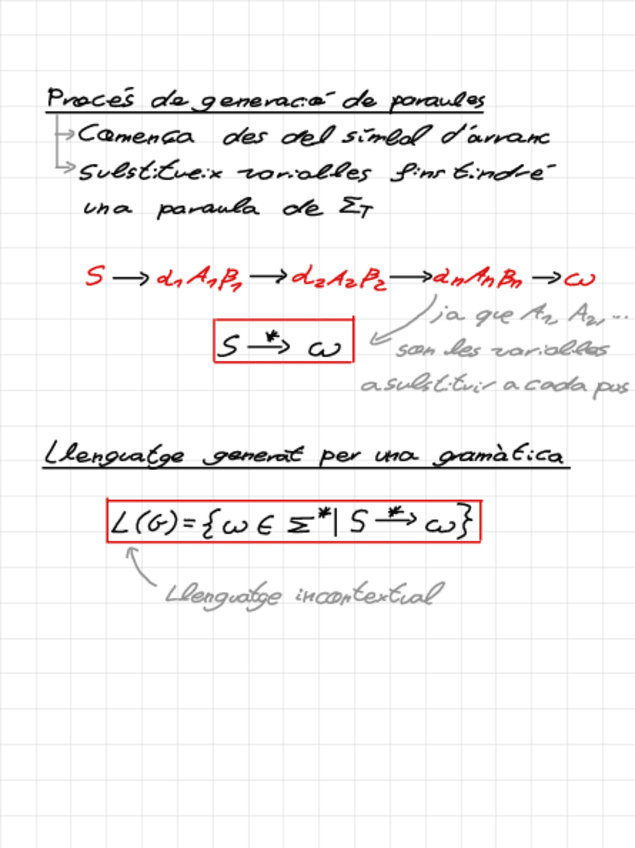 Procés de generació de paraules
→ Comença des del símbol d'arranc
→ Substitueix variables fins tindre
una paraula de Σ_T
S → α₁A₁β₁ → α₂A₂β₂ → αₙAₙβₙ → ω
S →* ω
ja que A₁, A₂, ...
son les variables
a substituir a cada pas
Llenguatge generat per una gramàtica
L(G) = {ω ∈ Σ* | S →* ω}
Llenguatge incontextual